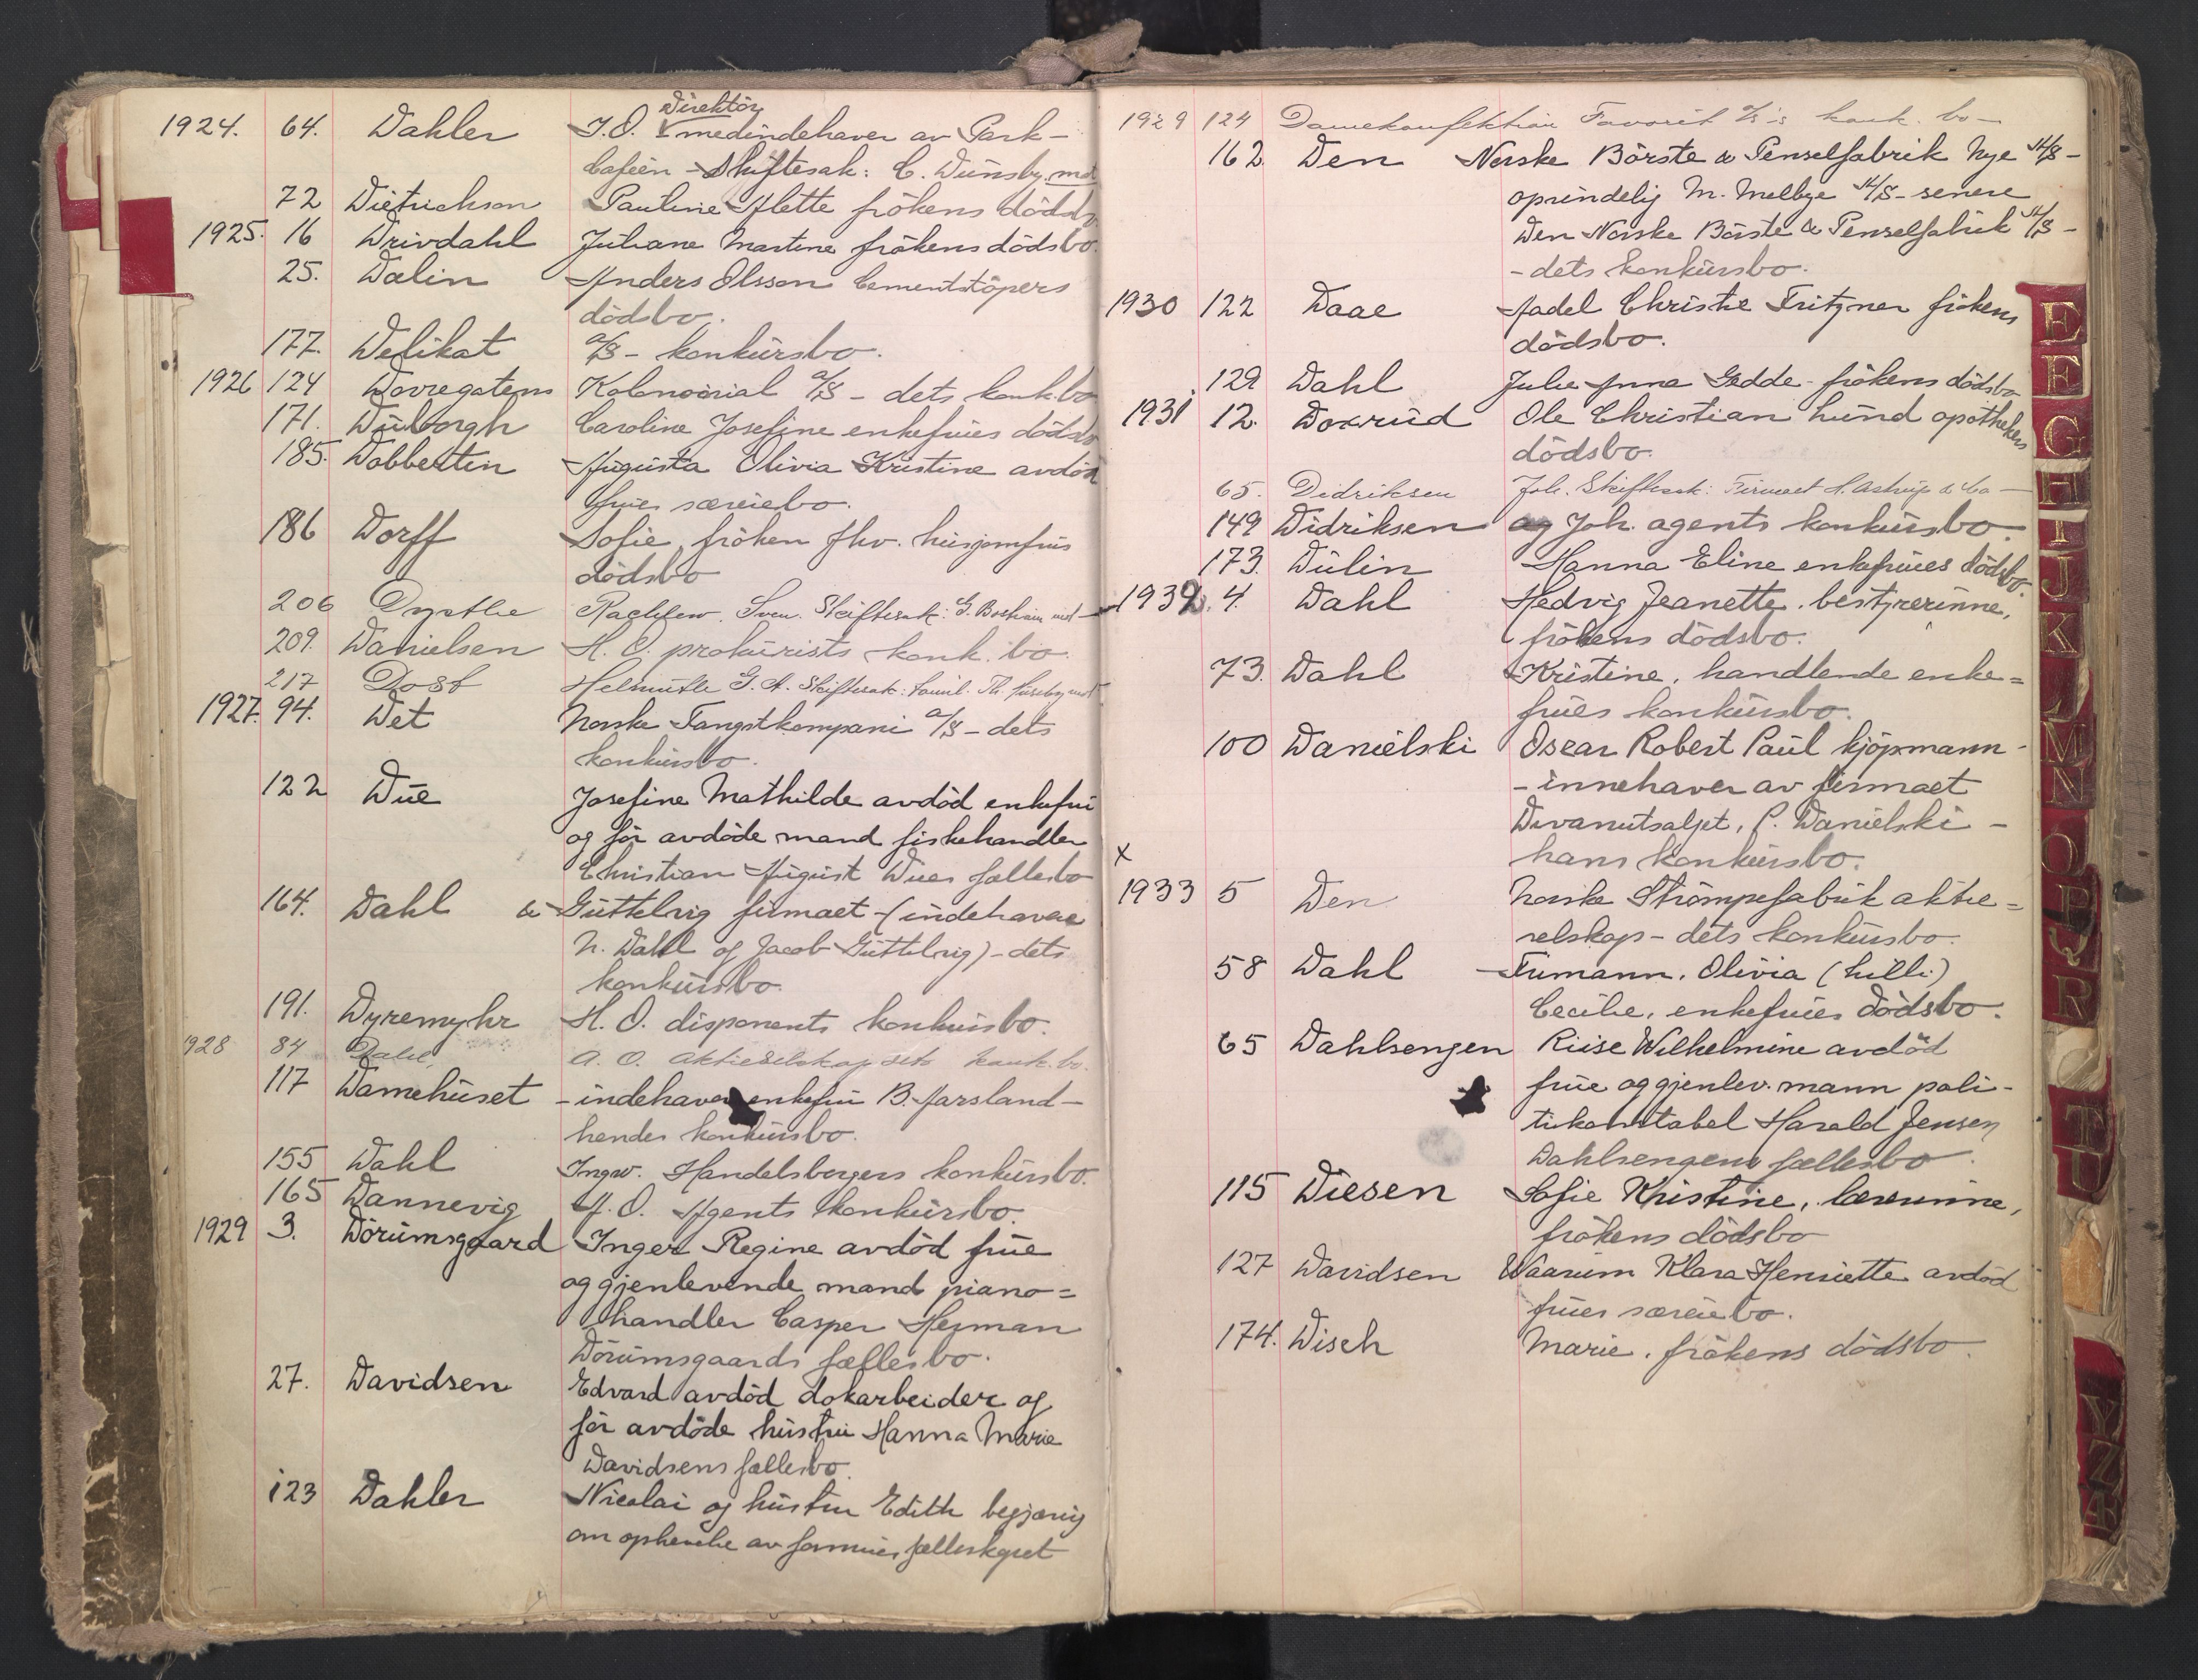 1924. 64. Dahler J. O. Direktör medindehaver av Park-
Cafeen - Skiftesak: C. Dünsby mot
72 Dietrichson Pauline Alette frökens dödsb.
1925. 16 Drivdahl Juliane Martine frökens dödsbo.
25. Dalin Anders Olsson Cementstöpers
dödsbo.
177. Delikat A/S - konkürsbo.
1926 124 Dovregatens Kolonoirial A/S - dets konk.bo
171. Düborgh Caroline Josefine enkefrües dödsbo
185. Dobbertin Augusta Olivia Kristine avdöd
früe særeiebo.
186 Dorff Sofie, fröken fhv. hüsjomfrüs
dödsbo
206 Dysthe Sven. Skiftesak: G. mot -
209. Danielsen H. O. prokürists konk. bo.
217 Dost Helmuth G. A. Skiftesak: Th. mot
1927. 94. Det Norske Fangstkompani A/S - dets
konkürsbo.
122 Düe Josefine Mathilde avdöd enkefrü
og för avdöde mand fiskehandler
Christian August Dües fællesbo
164. Dahl & Güttelvig firmaet - (indehavere
N. Dahl og Jacob Güttelvig) - dets
konkürsbo.
191. Dyremyhr H. O. disponents konkürsbo.
1928 84 Dahl, A. O. Aktieselskap dets konk. bo.
117 Damehüset - indehaver enkefrü B. Aarsland -
hendes konkürsbo.
155 Dahl Ingw. Handelsborgers konkürsbo.
165 Dannevig A. O. Agents konkürsbo.
1929 3. Dörümsgaard Inger Regine avdöd früe
og gjenlevende mand piano=
handler Casper Herman
Dörümsgaards fællesbo.
27. Davidsen Edvard avdöd dokarbeider og
för avdöde hüstrü Hanna Marie
Davidsens fællesbo.
123 Dahler Nicolai og hüstrü Edith begjæring
om ophævelse av formües fælleskapet
1929 124 Damekonfektion Favorit A/S's konk. bo -
162. Den Norske Börste & Penselfabrik Nye A/S -
oprindelig M. Melbye A/S - senere
Den Norske Börste & Penselfabrik A/S -
- dets konkürsbo.
1930 122 Daae Aadel Christie Fritzner frökens
dödsbo.
129 Dahl Julie Anna Gedde - frökens dödsbo
1931 12. Doxrüd Ole Christian Lünd apothekers
dödsbo.
65. Didriksen Joh. Skiftesak: Firmaet H. Astrup & Co -
149 Didriksen og Joh. agents konkürsbo.
173. Dülin Hanna Eline enkefrües dödsbo.
1932. 4. Dahl Hedvig Jeanette. bestyrerinne,
frökens dödsbo.
73. Dahl Kristine, handlende enke=
frües konkürsbo.
100 Danielski Oscar Robert Paül kjöpmann -
- innehaver av firmaet
Divanutsalget, P. Danielski -
hans konkürsbo.
x
1933 5 Den Norske Strömpefabrik aktie=
selskap - dets konkürsbo.
58 Dahl - Tümann, Olivia (Lilli)
Cecilie, enkefrües dödsbo.
65 Dahlsengen Riise Wilhelmine avdöd
früe og gjenlev. mann poli-
tikonstabel Harald Jensen
Dahlsengens fællesbo.
115 Diesen Sofie Kristine, lærerinne,
frökens dödsbo
127 Davidsen Waarüm Klara Henriette avdöd
frües særeiebo.
174. Disch Marie, frökens dödsbo.
E
E
G
H
I
J
K
M
N
O
P
Q
R
T
U
Y
Z